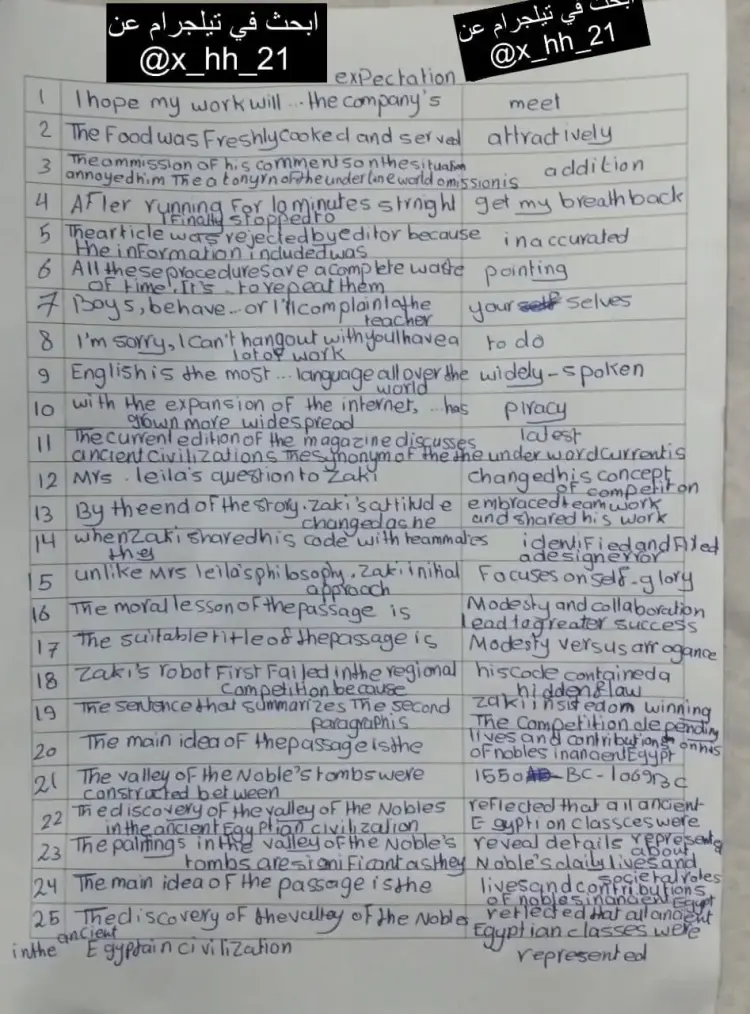 ابحث في تيلجرام عن
@x_hh_21
ابحث في تيلجرام عن
@x_hh_21
exPectation
1 I hope my work will ... the company's meet
2 The Food was Freshly cooked and served attractively
3 The ommission of his comments on the situation
annoyed him The atonyrn of the underline world omission is addition
4 AFler running For 10 minutes strnight get my breath back
I Finally stopped to
5 The article was rejected by editor because inaccurated
the information included was
6 All these procedures are a complete waste pointing
of time. It's .. to repeat them
7 Boys, behave ... or I'll complain to the your selves
teacher
8 I'm sorry, I can't hang out with you I have a to do
lot of work
9 English is the most ... language all over the widely - spoken
world
10 with the expansion of the internet, ... has piracy
grown more widespread
11 The current edition of the magazine discusses latest
ancient civilizations The synonym of the the under word current is
12 Mrs . leila's question to Zaki changed his concept
of competiton
13 By the end of the story. Zaki's attitude embraced team work
changed as he and shared his work
14 when Zaki shared his code with teammates identified and fixed
they a design error
15 unlike Mrs leila's philosophy. Zaki initial Focuses on self-glory
approach
16 The moral lesson of the passage is Modesty and collaboration
lead to greater success
17 The suitable title of the passage is Modesty versus arrogance
18 Zaki's robot First Failed in the regional his code contained a
Competition because hidden flaw
19 The sentence that summarizes The second Zaki insisted om winning
paragraph is The Competition depending on his
20 The main idea of the passage is the lives and contributions
of nobles in ancient Egypt
21 The valley of the Noble's tombs were 1550 BC - 1069 BC
constructed between
22 The discovery of the valley of the Nobles reflected that all ancient
in the ancient Egyptian civilization Egyption classces were
23 The paintings in the valley of the Noble's reveal details represented
about
tombs are significant as they Noble's daily lives and
societal roles
24 The main idea of the passage is the lives and contributions
of nobles in ancient Egypt
25 The discovery of the valley of the Nobles reflected that all ancient
in the ancient Egyptain civilization Egyptian classes were
represented